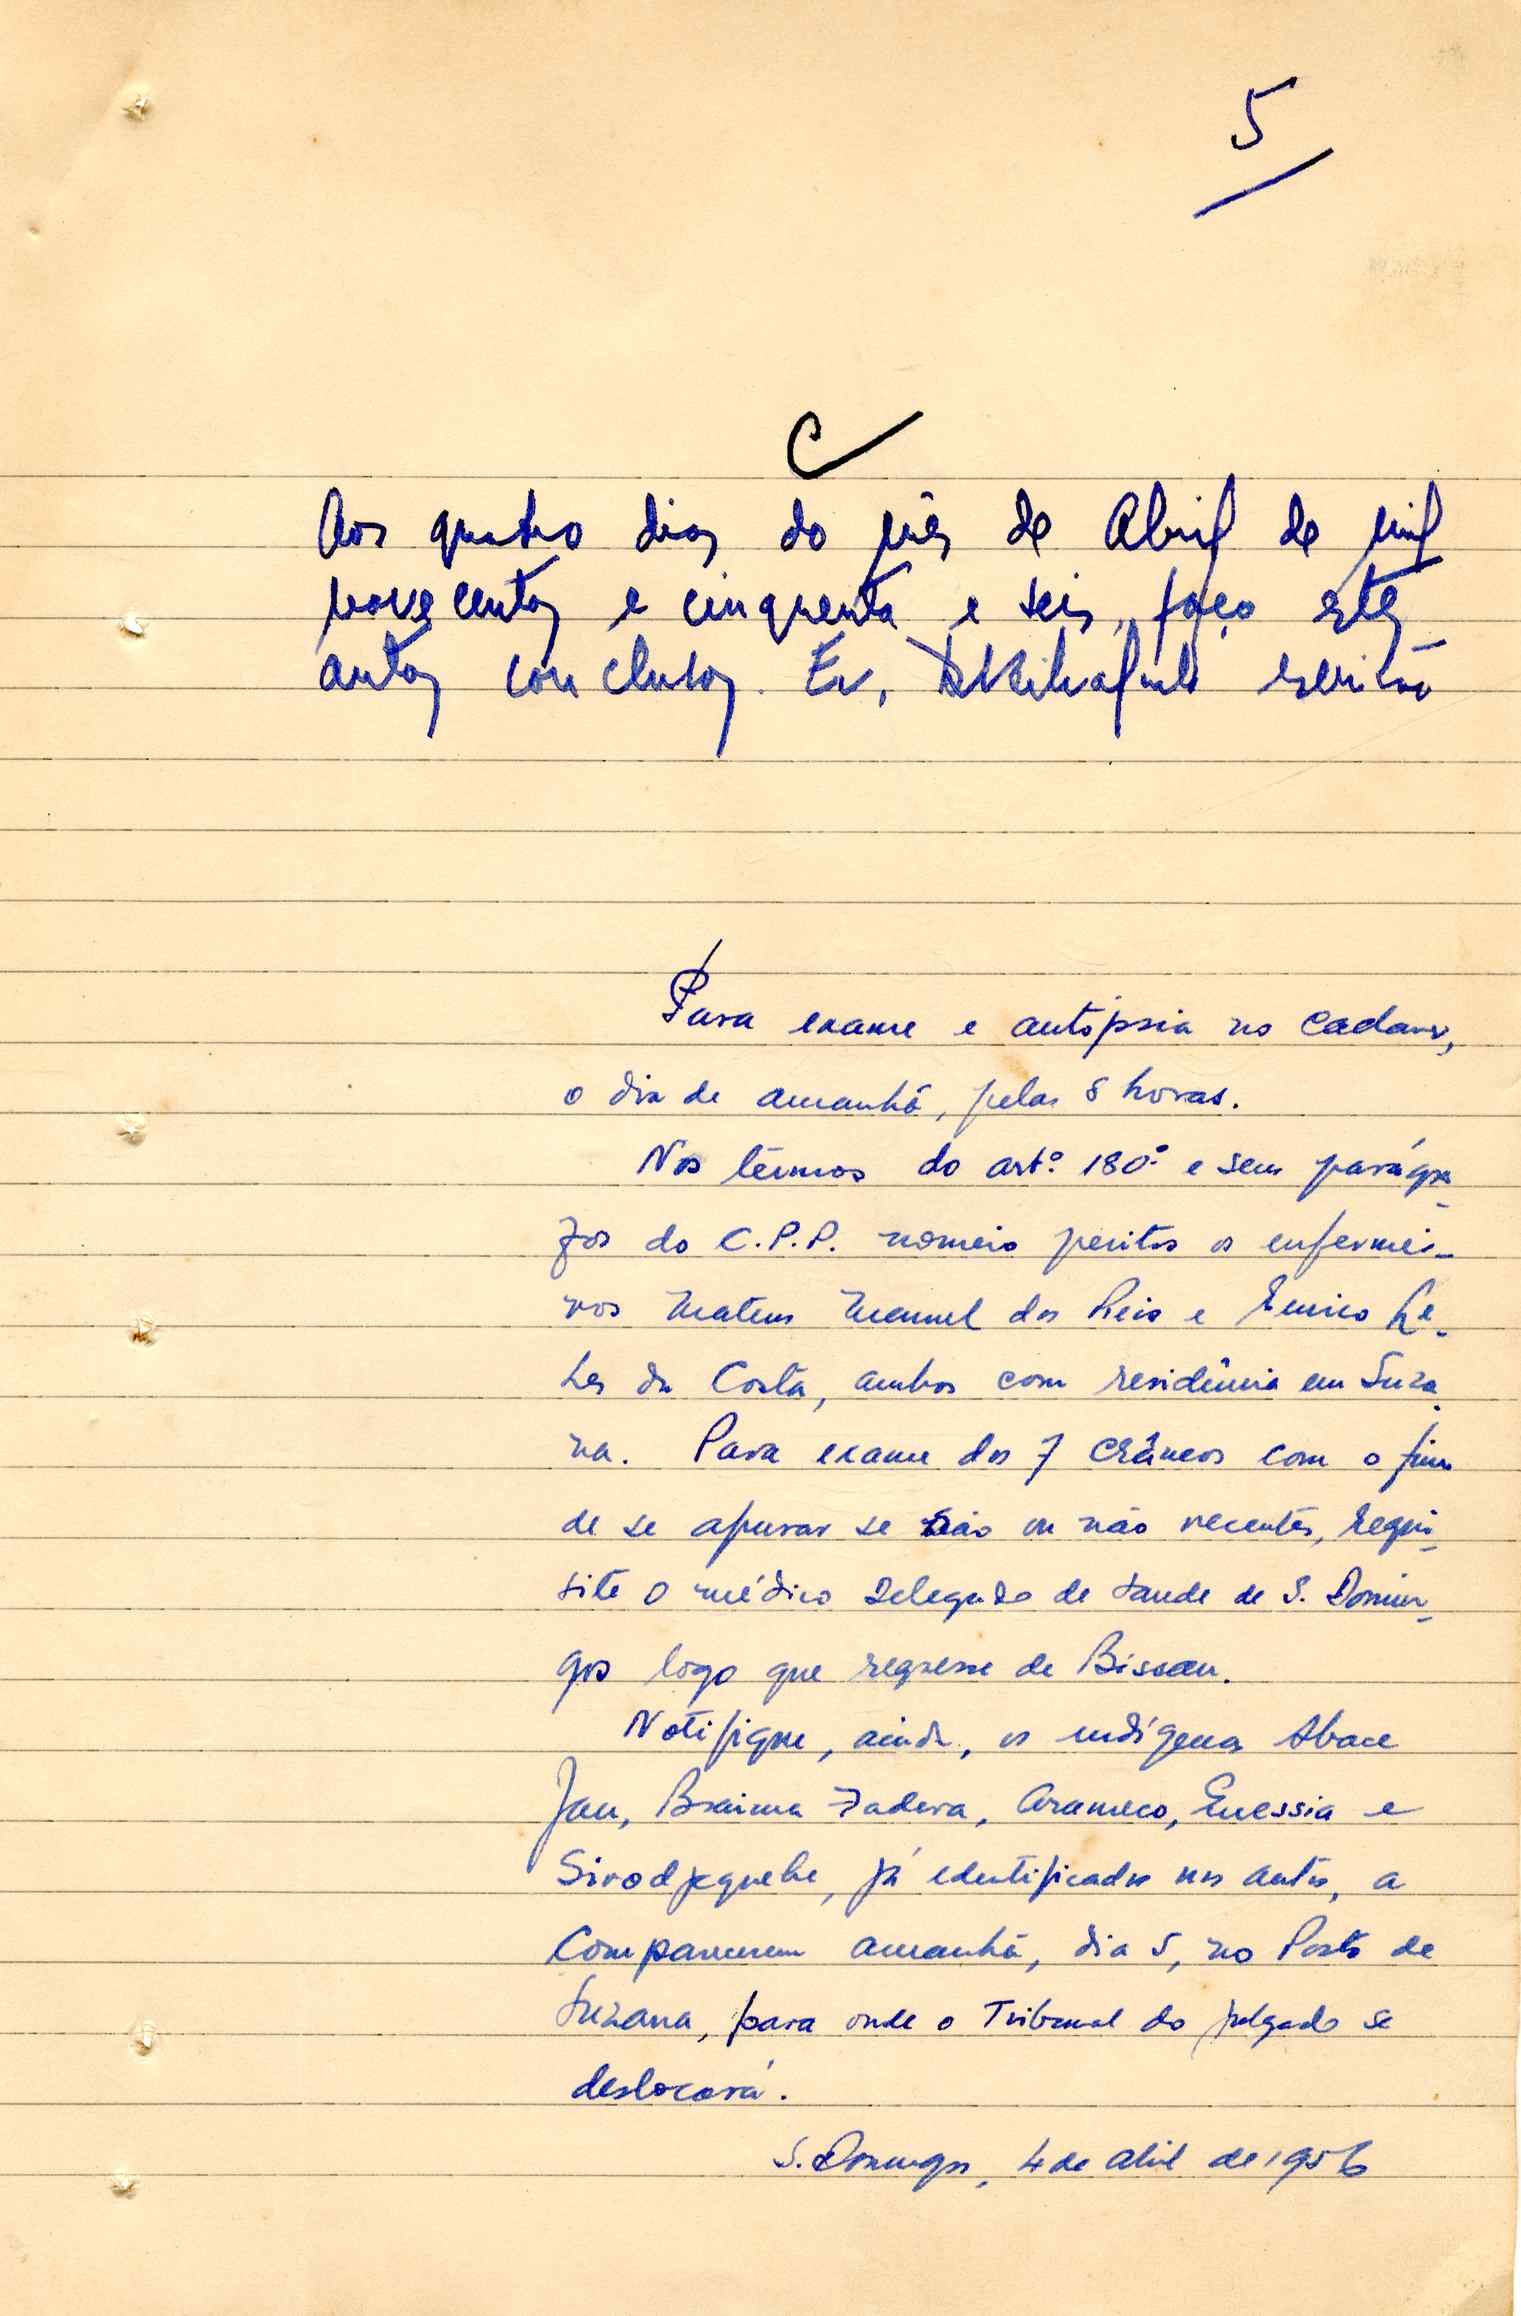 5
C
Aos quatro dias do mês de Abril de mil
novecentos e cinquenta e seis, faço estes
autos conclusos. Eu, escrivão
Para exame e autópsia no cadaver,
o dia de amanhã, pelas 8 horas.
Nos têrmos do artº. 180º e seus parágra-
fos do C.P.P. nomeio peritos os enfermei-
ros Mateus Manuel dos Reis e Eurico Te-
les da Costa, ambos com residência em Suza-
na. Para exame dos 7 crâneos com o fim
de se apurar se são ou não recentes, requi-
site o médico Delegado de Saude de S. Domin-
gos logo que regresse de Bissau.
Notifique, ainda, os indígenas Abace
Jau, Braima Fadera, Arameco, Enessia e
Sirodjequebe, já identificados nos autos, a
comparecerem amanhã, dia 5, no Posto de
Suzana, para onde o Tribunal do julgado se
deslocará.
S. Domingos, 4 de Abril de 1956